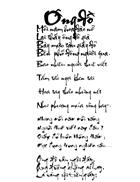 Ông đồ
Mỗi năm hoa đào nở
Lại thấy ông đồ già
Bày mực tàu giấy đỏ
Bên phố đông người qua.
Bao nhiêu người thuê viết
Tấm tắc ngợi khen tài
Hoa tay thảo những nét
Như phượng múa rồng bay.
Nhưng mỗi năm mỗi vắng
Người thuê viết nay đâu?
Giấy đỏ buồn không thắm;
Mực đọng trong nghiên sầu...
Ông đồ vẫn ngồi đấy,
Qua đường không ai hay,
Lá vàng rơi trên giấy;